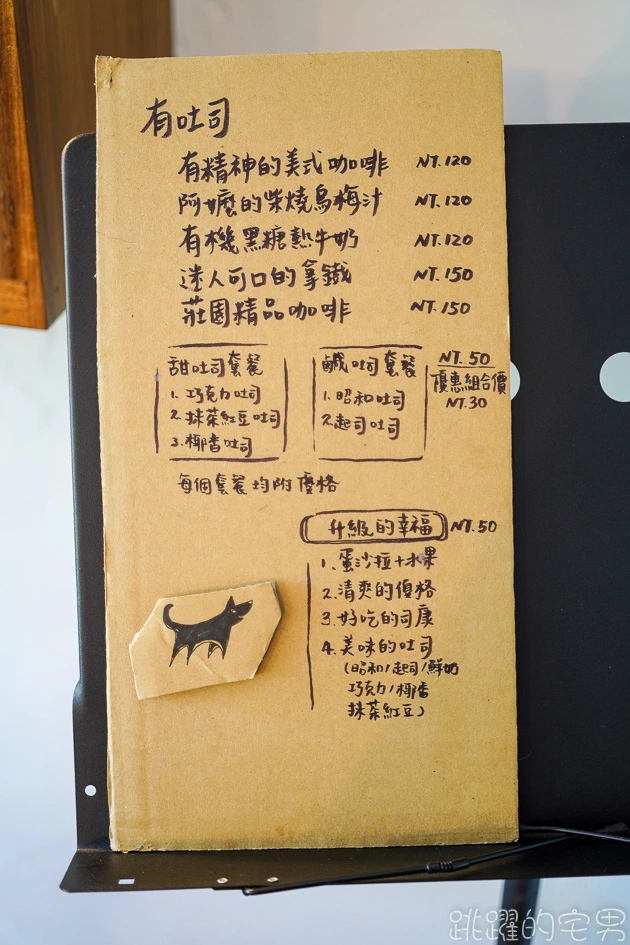 有吐司
有精神的美式咖啡 NT.120
阿嬤的柴燒烏梅汁 NT.120
有機黑糖熱牛奶 NT.120
迷人可口的拿鐵 NT.150
莊園精品咖啡 NT.150
甜吐司套餐
1. 巧克力吐司
2. 抹茶紅豆吐司
3. 椰香吐司
鹹吐司套餐
1. 昭和吐司
2. 起司吐司
NT. 50
優惠組合價
NT.30
每個套餐均附優格
升級的幸福 NT.50
1. 蛋沙拉+水果
2. 清爽的優格
3. 好吃的司康
4. 美味的吐司
(昭和/起司/鮮奶
巧克力/椰香
抹茶紅豆)
跳躍的宅男